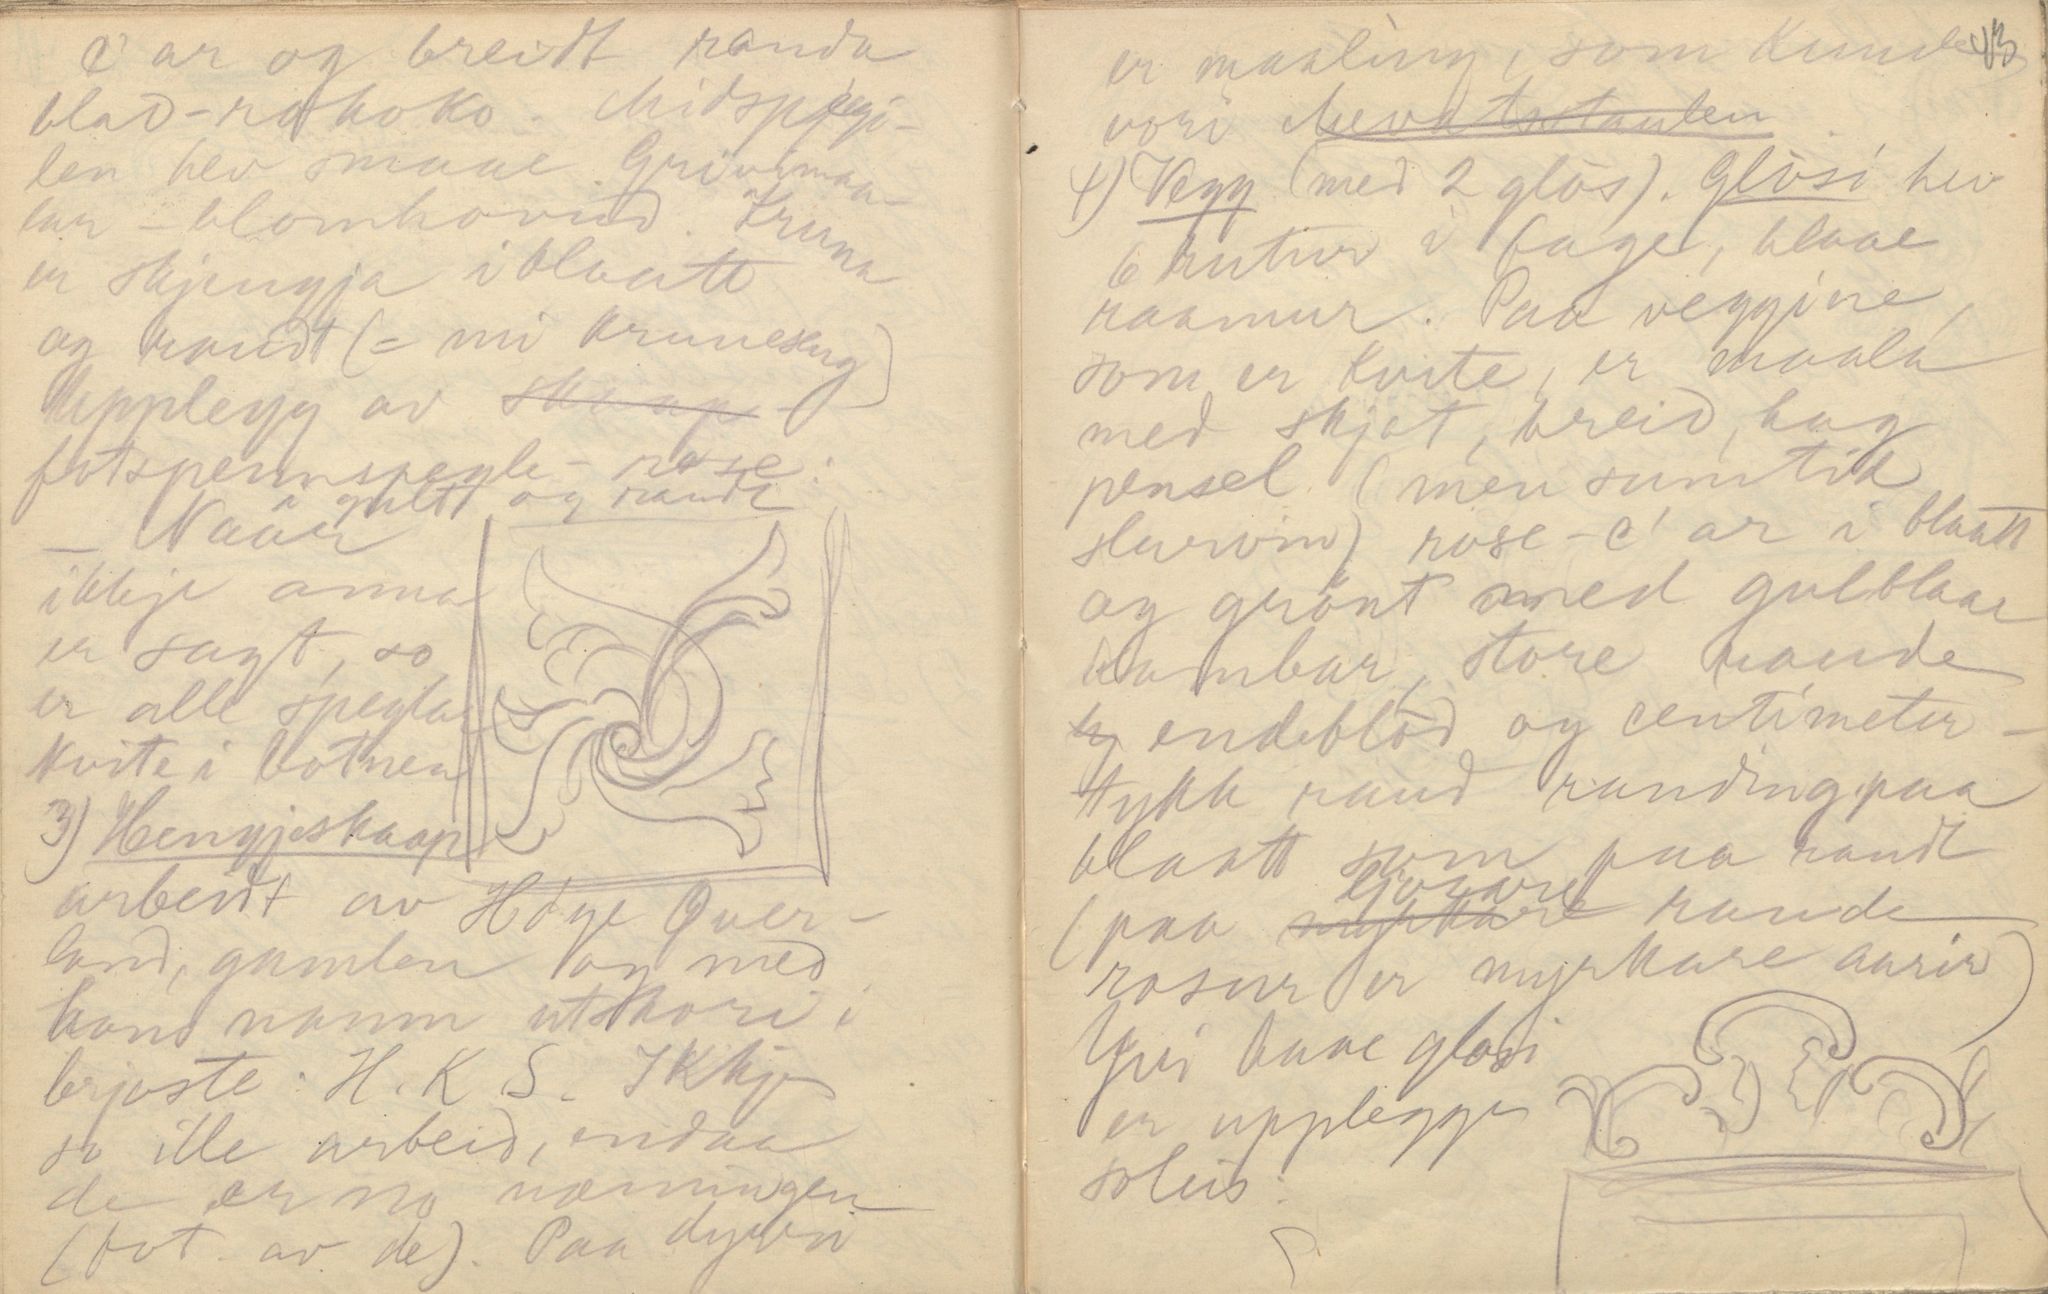 c'ar og breidt randa
blad-rokoko. Midspegi-
len hev smaae Grivimaa-
lar-blomhovud. Kruna
er skjengja i blaatt
og raudt (= mi kruneskug)
Upplegg av skaap-
fotspennspegle-rose:
gult og raudt
Naar
ikkje anna
er sagt, so
er alle speglar
kvite i botnen
3) Hengjeskaap
arbeidt av Høye Over-
land, gamlen og med
hans namn utskori i
brjoste: H.K.S. Ikkje
so ille arbeid, endaa
de er no næmingen
(bot av de). Paa dyrni
43
er maaling, som kunde
vori Nevatstaulen
4) Vegg (med 2 gløs). Gløsi hev
6 rutur i faget, blaae
raamur. Paa veggjine,
som er kvite, er maala
med skjot, breid, hag
pensel (men sumtid
slurvin) rose-c'ar i blaatt
og grønt med gulblaae
kambar, store raude
endeblød og centimeter-
tykk raud randing paa
blaatt som paa raudt
(paa myrkare ljosare raude
rosur er myrkare aarir)
Yvi baae glosi
er upplegge
soleis: